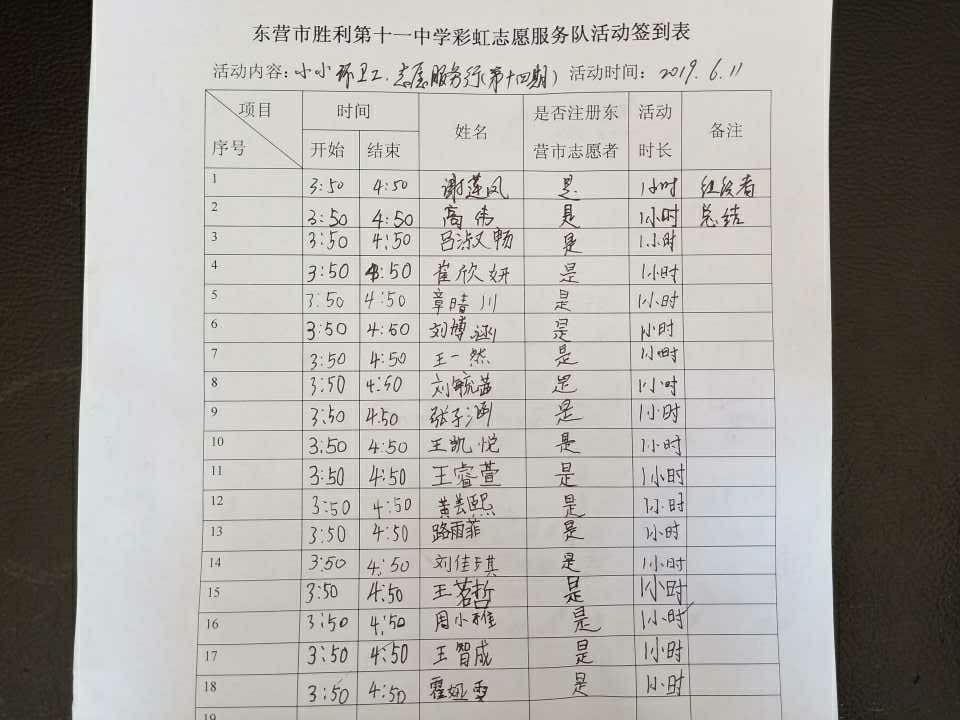 东营市胜利第十一中学彩虹志愿服务队活动签到表
活动内容：小小环卫工，志愿服务行（第十四期） 活动时间：2019.6.11
项目 时间 姓名 是否注册东营市志愿者 活动时长 备注
序号 开始 结束
1 3:50 4:50 谢莲凤 是 1小时 组织者
2 3:50 4:50 高伟 是 1小时 总结
3 3:50 4:50 吕淑畅 是 1小时
4 3:50 4:50 崔欣妍 是 1小时
5 3:50 4:50 章晴川 是 1小时
6 3:50 4:50 刘博涵 是 1小时
7 3:50 4:50 王一然 是 1小时
8 3:50 4:50 刘毓茜 是 1小时
9 3:50 4:50 张子涵 是 1小时
10 3:50 4:50 王凯悦 是 1小时
11 3:50 4:50 王睿萱 是 1小时
12 3:50 4:50 是 1小时
13 3:50 4:50 路雨菲 是 1小时
14 3:50 4:50 刘佳琪 是 1小时
15 3:50 4:50 王茗哲 是 1小时
16 3:50 4:50 周小雅 是 1小时
17 3:50 4:50 王智成 是 1小时
18 3:50 4:50 霍娅雯 是 1小时
19